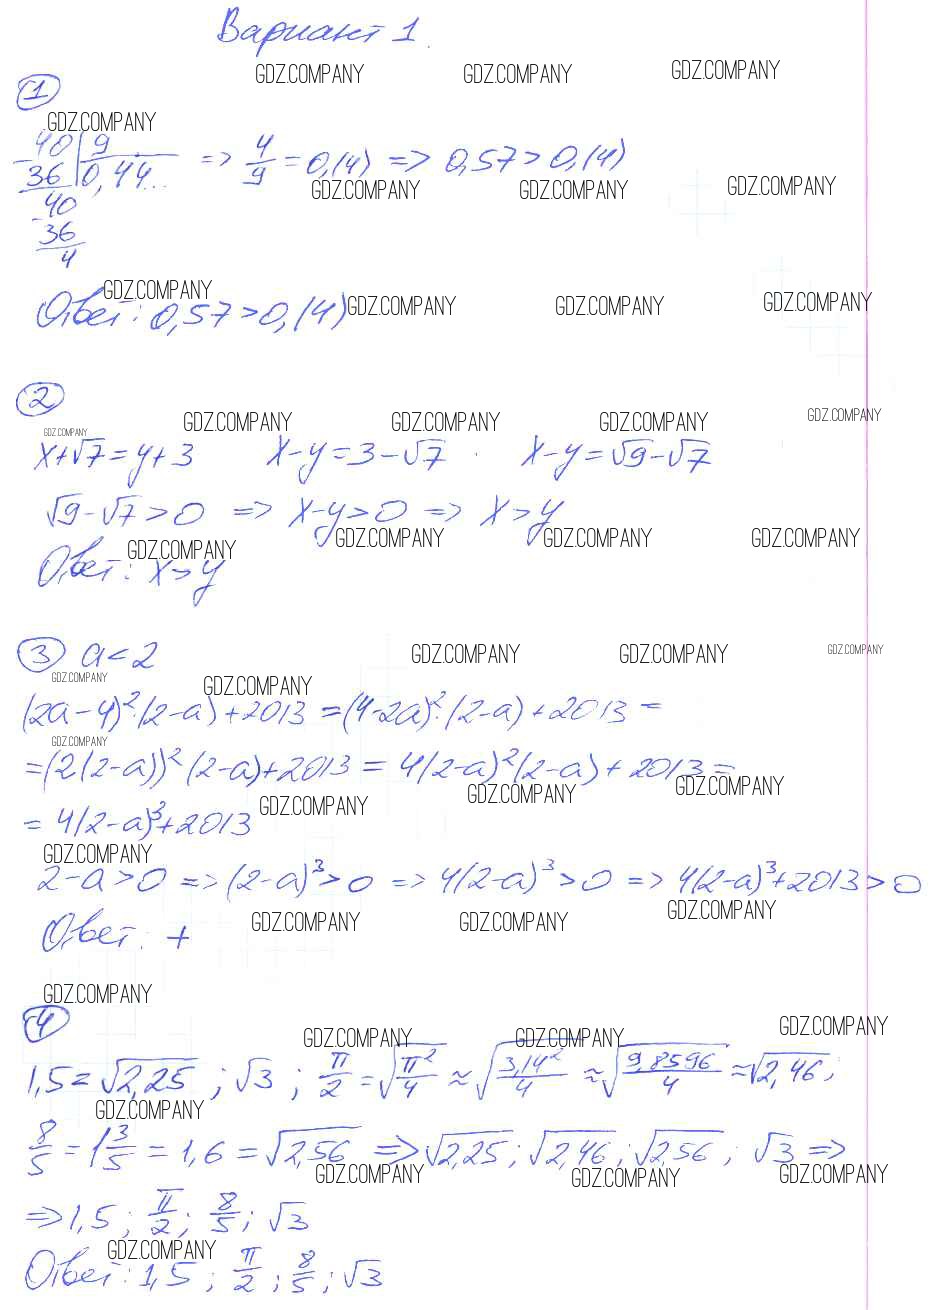 Вариант 1.
GDZ.COMPANY GDZ.COMPANY GDZ.COMPANY
1
GDZ.COMPANY
40 | 9
- 36 0,44... => 4/9 = 0,(4) => 0,57 > 0,(4)
GDZ.COMPANY GDZ.COMPANY GDZ.COMPANY
40
- 36
4
GDZ.COMPANY
Ответ: 0,57 > 0,(4) GDZ.COMPANY GDZ.COMPANY GDZ.COMPANY
2
GDZ.COMPANY GDZ.COMPANY GDZ.COMPANY GDZ.COMPANY
GDZ.COMPANY
x+√7 = y+3 x-y=3-√7 . x-y=√9-√7
√9-√7>0 => x-y>0 => x>y
GDZ.COMPANY GDZ.COMPANY GDZ.COMPANY GDZ.COMPANY
Ответ: x>y
3 a<2 GDZ.COMPANY GDZ.COMPANY GDZ.COMPANY
GDZ.COMPANY GDZ.COMPANY
(2a-4)²·(2-a)+2013 = (4-2a)²·(2-a)+2013 =
GDZ.COMPANY
=(2(2-a))²(2-a)+2013 = 4(2-a)²(2-a)+2013 =
GDZ.COMPANY GDZ.COMPANY GDZ.COMPANY
= 4(2-a)³+2013
GDZ.COMPANY
2-a>0 => (2-a)³>0 => 4(2-a)³>0 => 4(2-a)³+2013>0
GDZ.COMPANY GDZ.COMPANY GDZ.COMPANY
Ответ: +
GDZ.COMPANY
4
GDZ.COMPANY GDZ.COMPANY GDZ.COMPANY
1,5 = √2,25 ; √3 ; π/2 = √π²/4 ≈ √3,14²/4 ≈ √9,8596/4 ≈ √2,46;
GDZ.COMPANY
8/5 = 1 3/5 = 1,6 = √2,56 => √2,25; √2,46; √2,56; √3 =>
GDZ.COMPANY GDZ.COMPANY GDZ.COMPANY
=> 1,5; π/2; 8/5; √3
GDZ.COMPANY
Ответ: 1,5; π/2; 8/5; √3